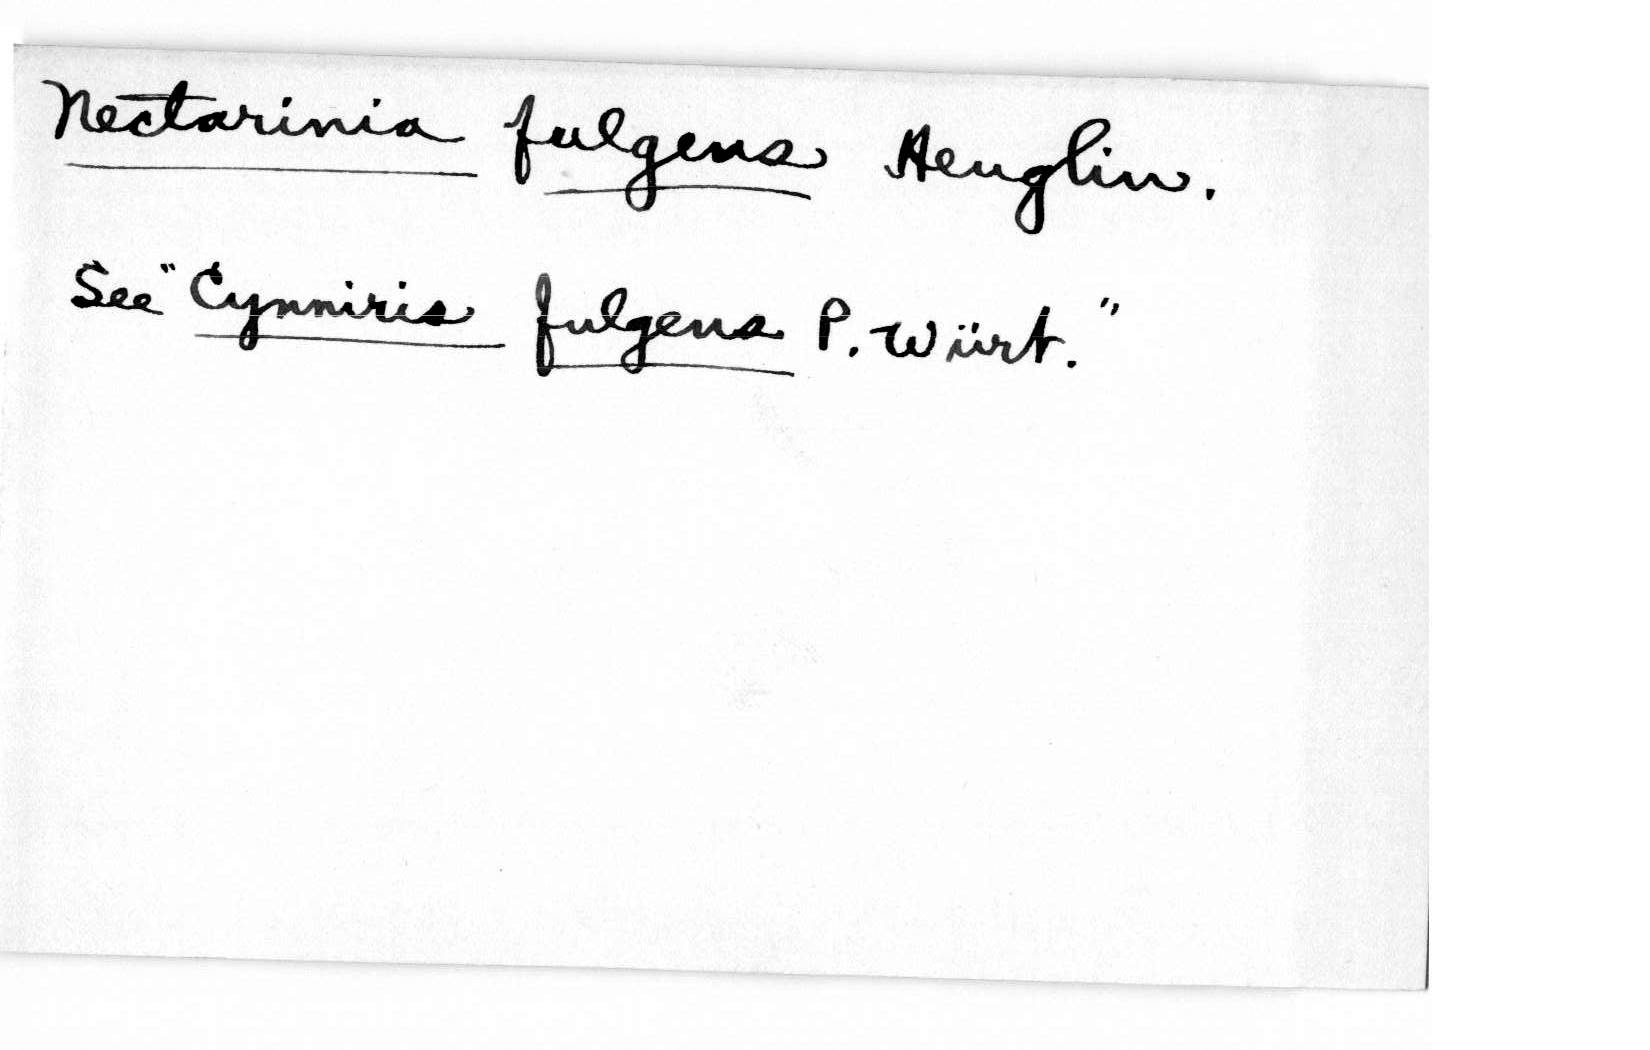 Nectarinia fulgens Heuglin.
See "Cynniris fulgens P. Würt."